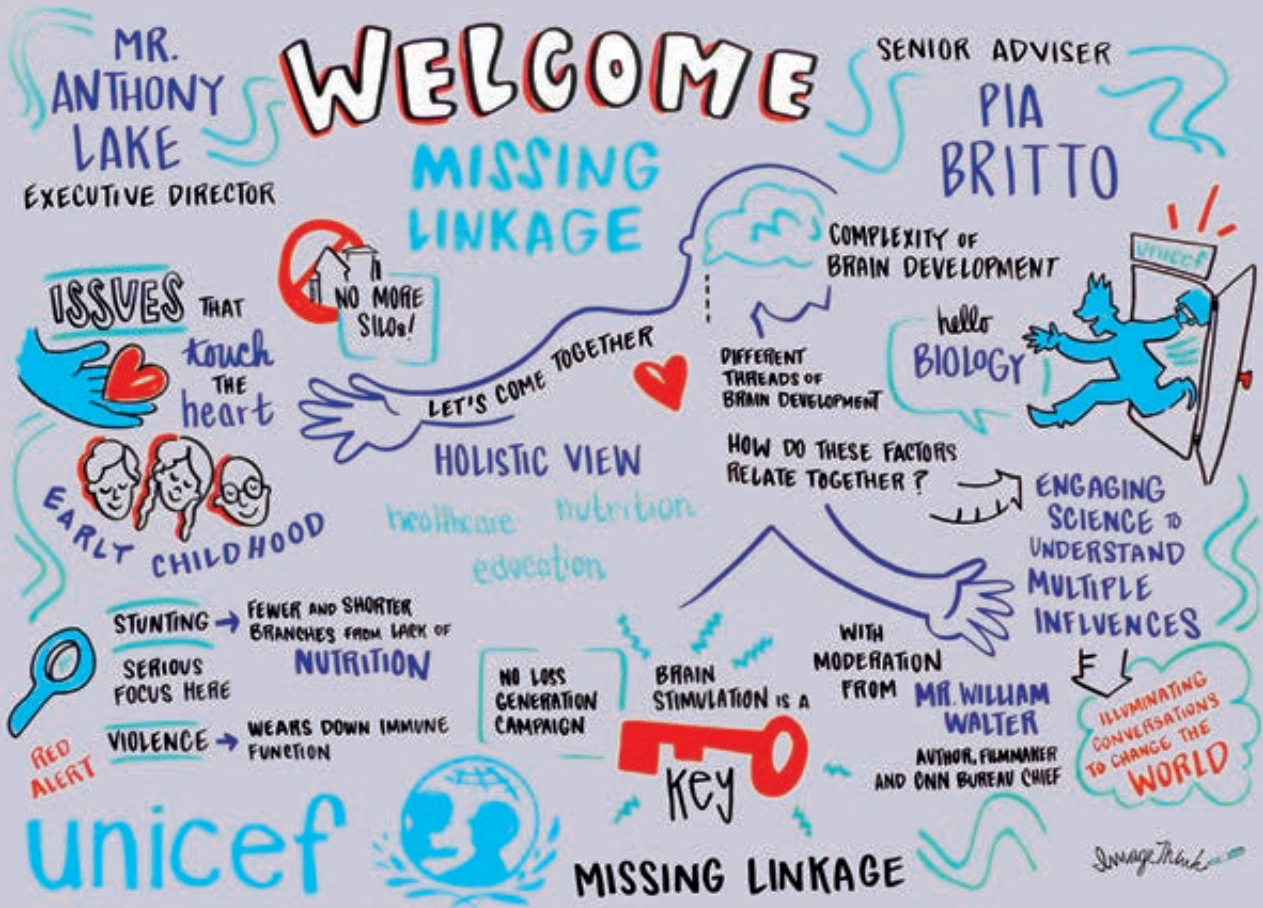 MR.
ANTHONY
LAKE
EXECUTIVE DIRECTOR
WELCOME
MISSING
LINKAGE
SENIOR ADVISER
PIA
BRITTO
NO MORE
SILOs!
ISSUES THAT
touch
THE
heart
EARLY CHILDHOOD
LET'S COME TOGETHER
HOLISTIC VIEW
healthcare nutrition
education
COMPLEXITY OF
BRAIN DEVELOPMENT
DIFFERENT
THREADS OF
BRAIN DEVELOPMENT
hello
BIOLOGY
unicef
HOW DO THESE FACTORS
RELATE TOGETHER?
ENGAGING
SCIENCE TO
UNDERSTAND
MULTIPLE
INFLUENCES
ILLUMINATING
CONVERSATIONS
TO CHANGE THE
WORLD
STUNTING → FEWER AND SHORTER
BRANCHES FROM LACK OF
NUTRITION
SERIOUS
FOCUS HERE
RED
ALERT
VIOLENCE → WEARS DOWN IMMUNE
FUNCTION
NO LOSS
GENERATION
CAMPAIGN
BRAIN
STIMULATION IS A
Key
WITH
MODERATION
FROM MR. WILLIAM
WALTER
AUTHOR, FILMMAKER
AND CNN BUREAU CHIEF
unicef
MISSING LINKAGE
ImageThink